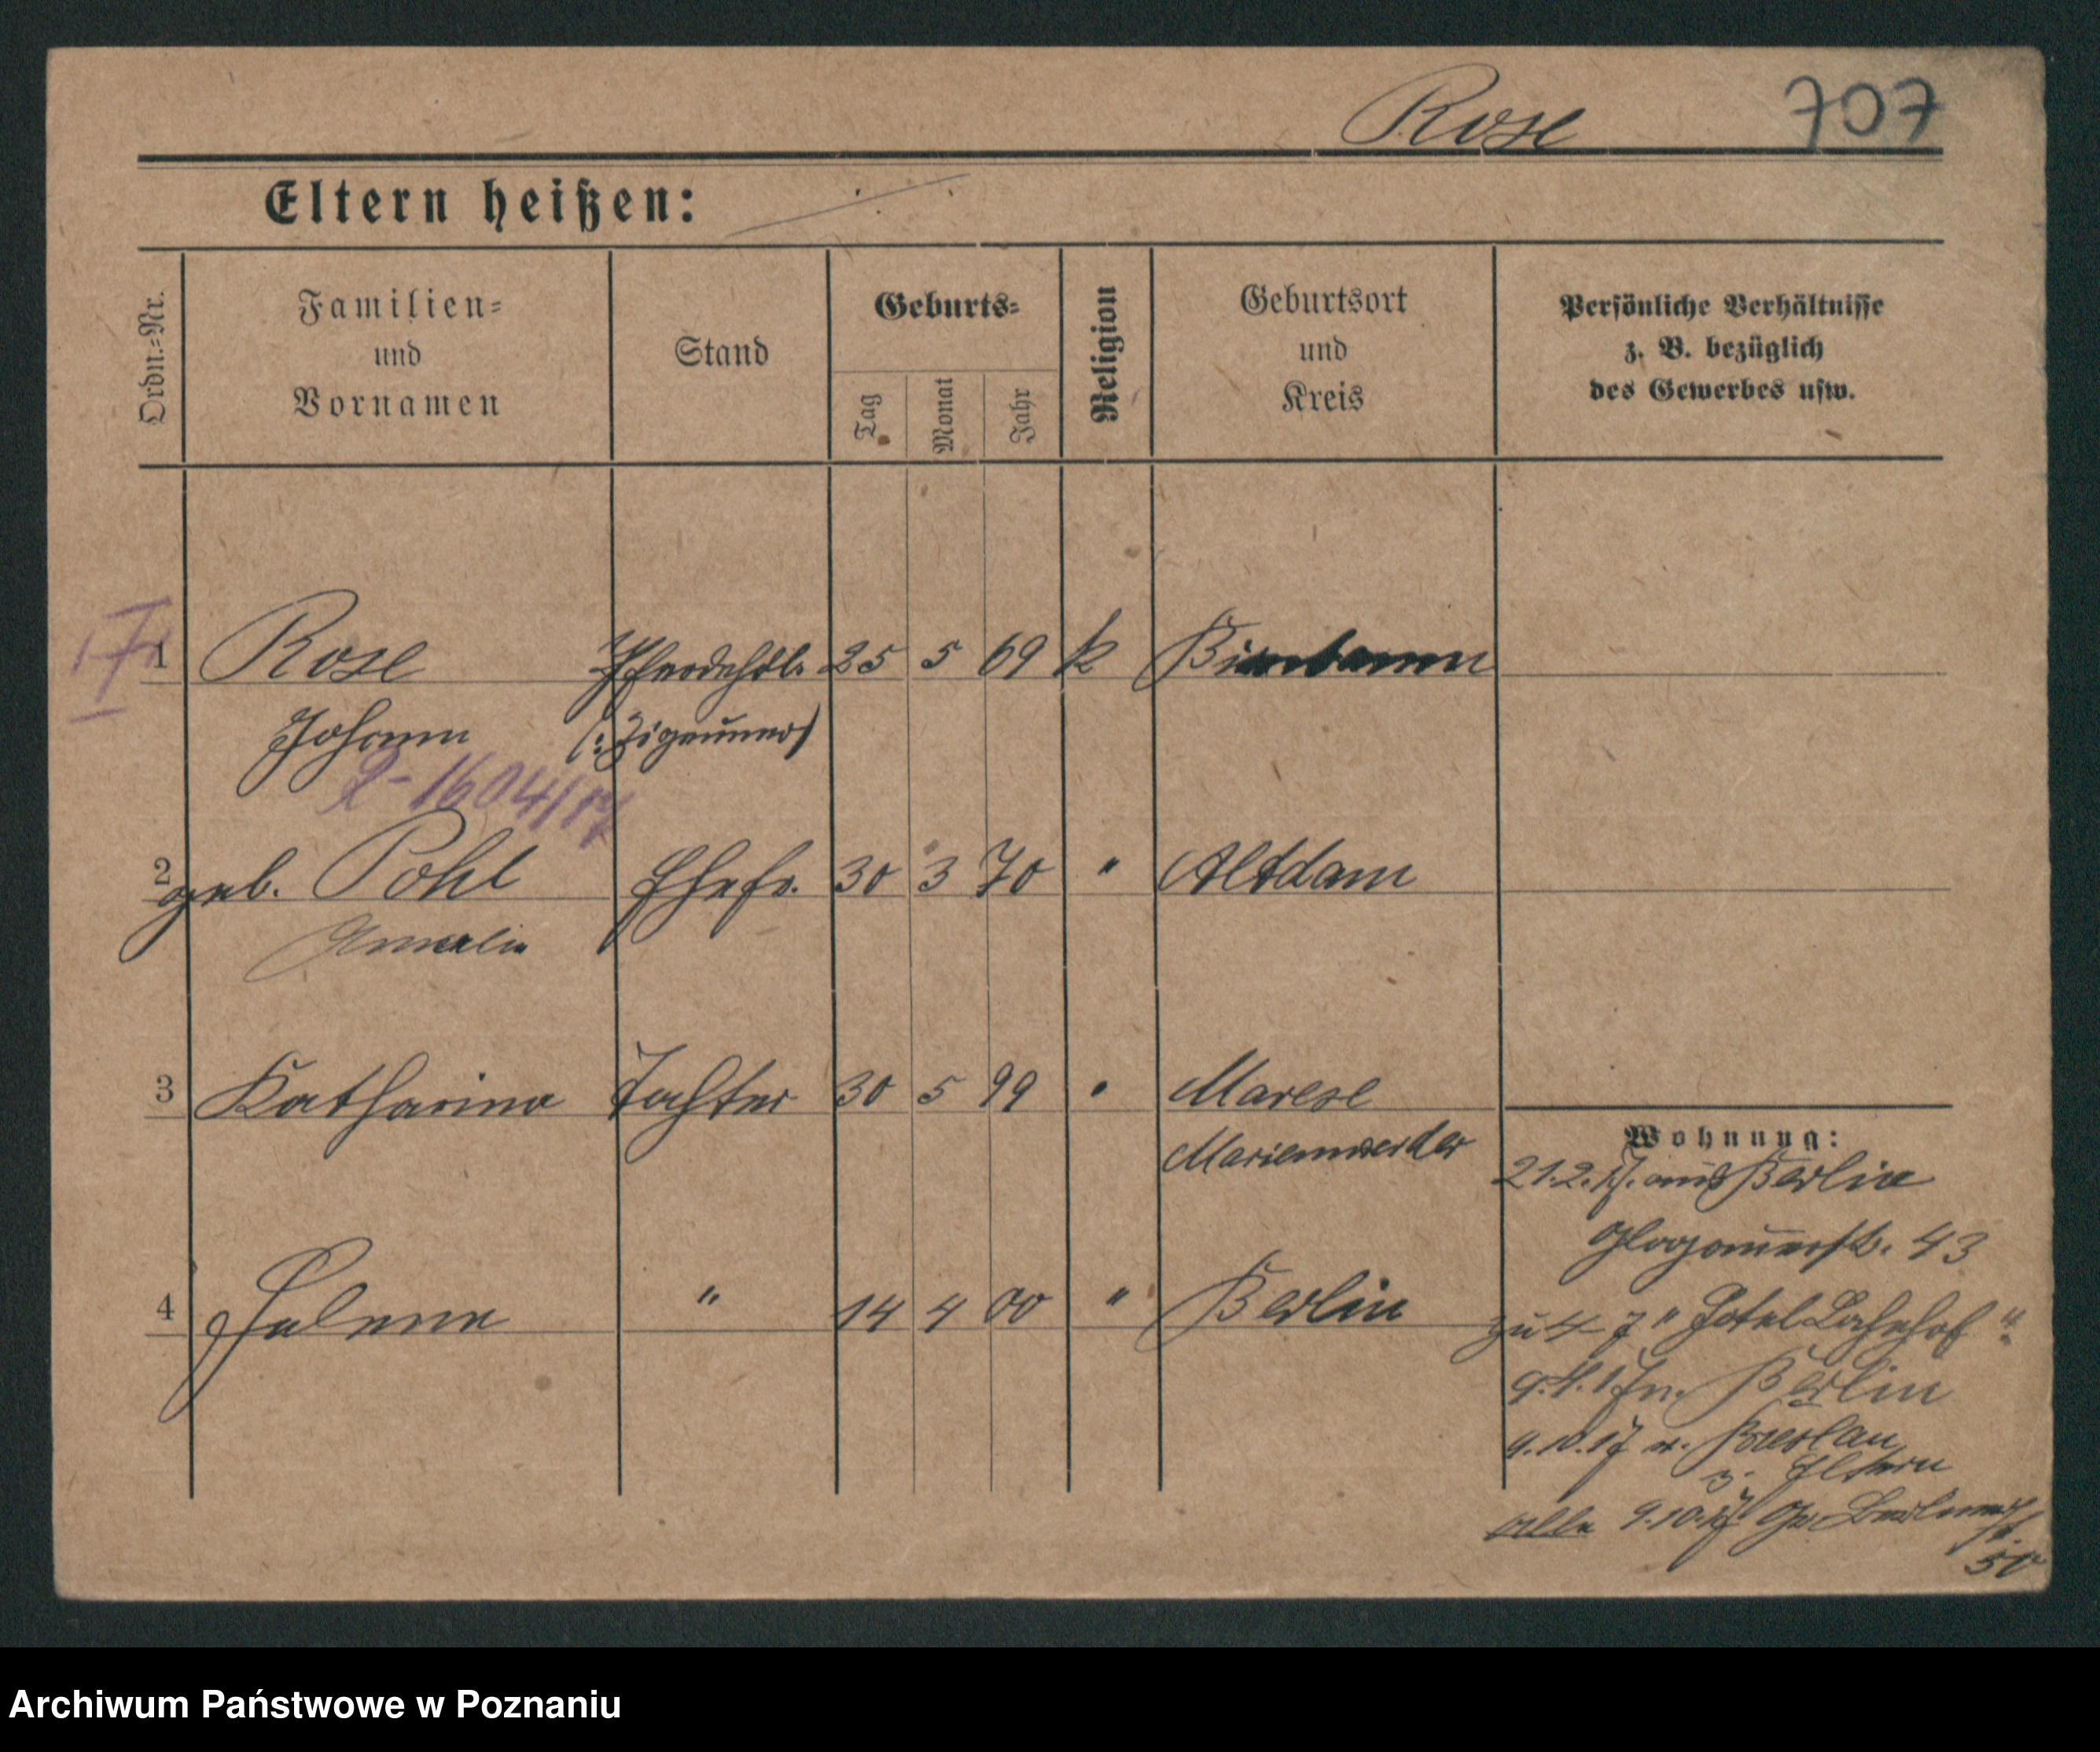 Rose 707
Eltern heißen: ·/·
Ordn.=Nr.
Familien=
und
Vornamen
Stand
Geburts=
Tag
Monat
Jahr
Religion
Geburtsort
und
Kreis
Persönliche Verhältnisse
z. B. bezüglich
des Gewerbes usw.
1 Rose Pferdehdl. 25 5 69 k Birnbaum
Johann (: Zigeuner)
1604/17
2 geb. Pohl Ehefr. 30 3 70 " Altdam
Amalie
3 Katharina Tochter 30 5 99 " Marese
Marienwerder
4 Helene " 14 4 00 " Berlin
Wohnung:
21.2.17. aus Berlin
Glogauerstr. 43
zu 4-7 "Hotel Bahnhof"
9.4.17 n. Berlin
9.10.17 v. Breslau
z. Eltern
alle 9.10.17 Gr. Berlinerstr.
50
Archiwum Państwowe w Poznaniu